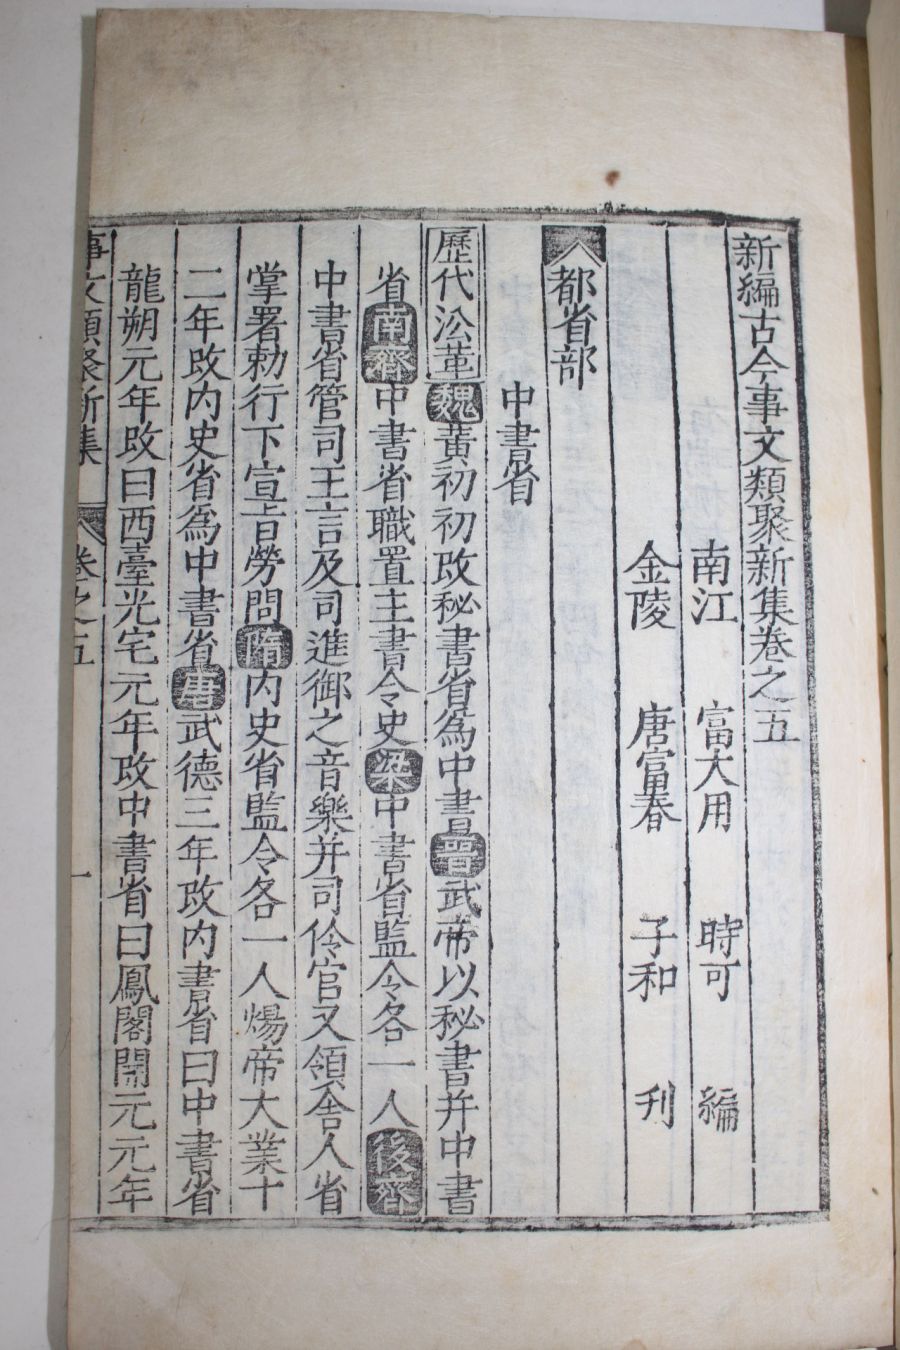 新編古今事文類聚新集卷之五
南江 富大用 時可 編
金陵 唐富春 子和 刋
都省部
中書省
歷代沿革魏黃初初改秘書省爲中書晉武帝以秘書并中書
省南齊中書省職置主書令史梁中書省監令各一人後齊
中書省管司王言及司進御之音樂并司伶官又領舍人省
掌署勅行下宣旨勞問隋内史省監令各一人煬帝大業十
二年改内史省爲中書省唐武德三年改内書省曰中書省
龍朔元年改曰西臺光宅元年改中書省曰鳳閣開元元年
事文類聚新集 卷之五 一